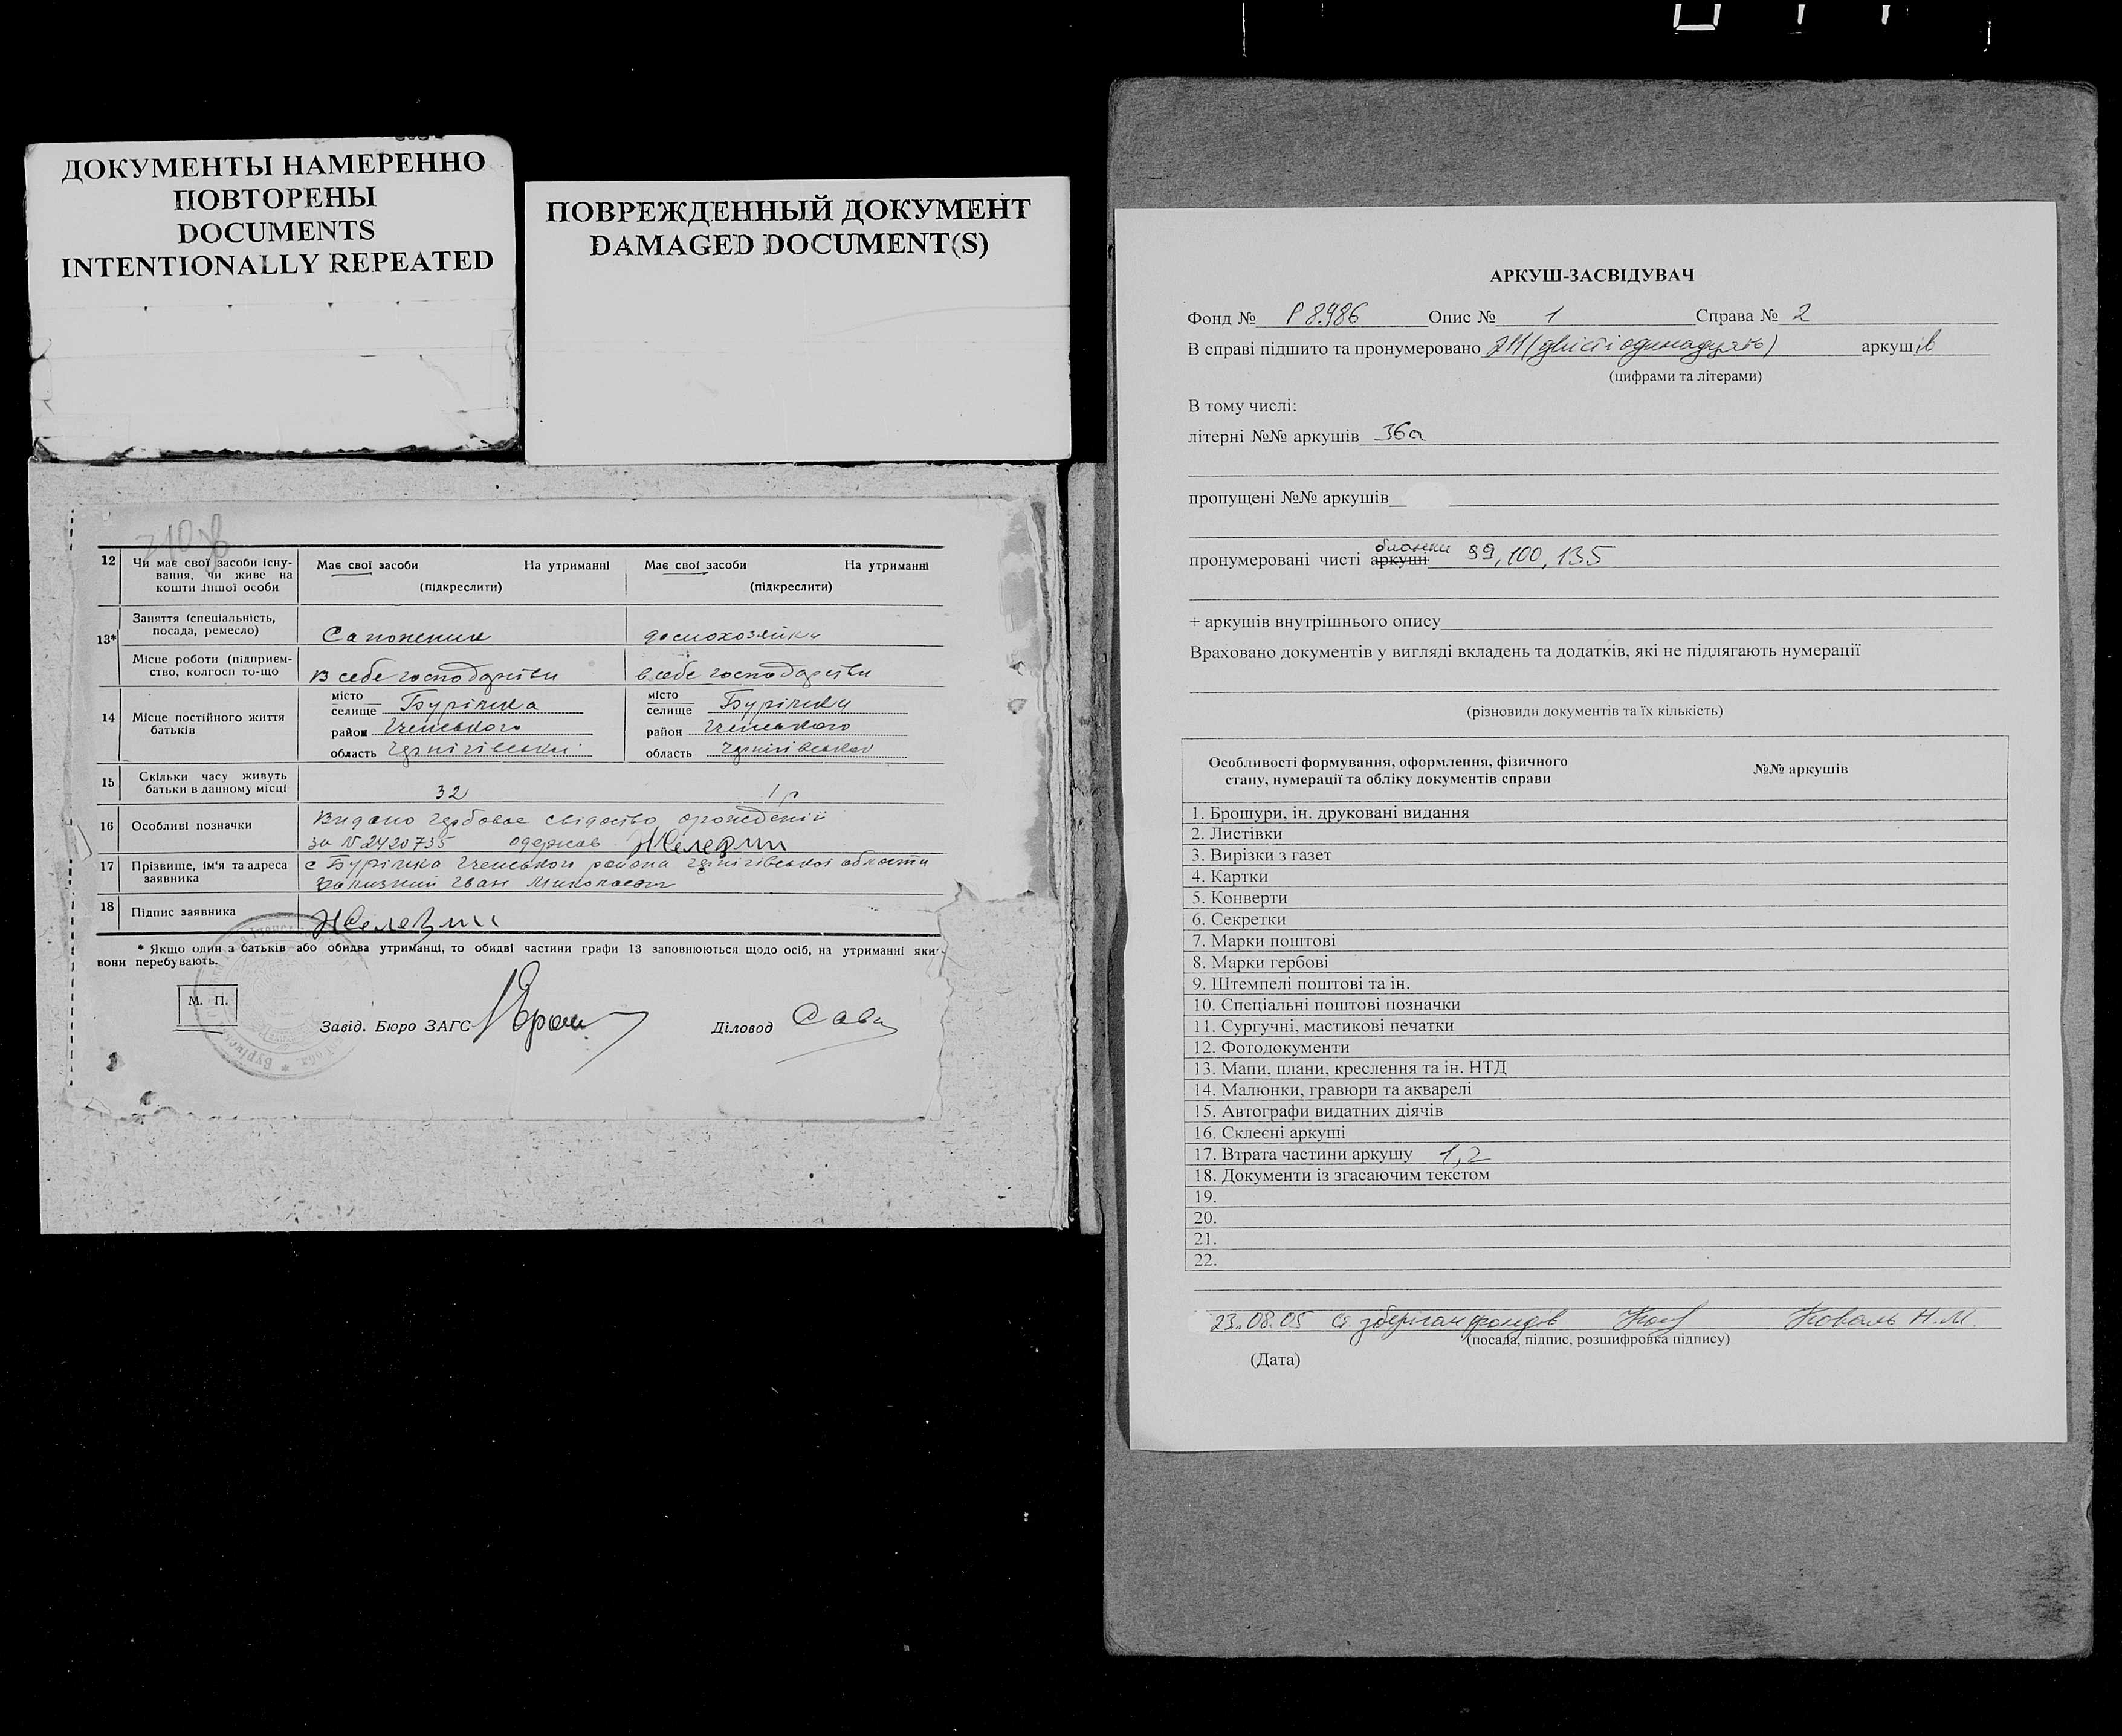 ДОКУМЕНТЫ НАМЕРЕННО
ПОВТОРЕНЫ
DOCUMENTS
INTENTIONALLY REPEATED
ПОВРЕЖДЕННЫЙ ДОКУМЕНТ
DAMAGED DOCUMENT(S)
12 Чи має свої засоби існування, чи живе на кошти іншої особи
Має свої засоби На утриманні Має свої засоби На утриманні
(підкреслити) (підкреслити)
13* Заняття (спеціальність, посада, ремесло) Сапожник домохозяйка
Місце роботи (підприємство, колгосп то-що в себе господарстви в себе господарстви
14 Місце постійного життя батьків
місто місто
селище Бурімка селище Бурімка
район Іченського район Іченського
область Чернігівської область Чернігівської
15 Скільки часу живуть батьки в данному місці 32 1 р
16 Особливі позначки Видано гербовое свідоство
за №2420735 одержав Железни
17 Прізвище, ім'я та адреса заявника с Бурімка Ічеського района Чернігівської области
Іван Миколаевич
18 Підпис заявника
* Якщо один з батьків або обидва утриманці, то обидві частини графи 13 заповнюються щодо осіб, на утриманні яких
вони перебувають.
М. П.
Завід. Бюро ЗАГС Діловод
АРКУШ-ЗАСВІДУВАЧ
Фонд № Р 8986 Опис № 1 Справа № 2
В справі підшито та пронумеровано 211 (двісті одинадцять) аркушів
(цифрами та літерами)
В тому числі:
літерні №№ аркушів 36а
пропущені №№ аркушів
бланки
пронумеровані чисті аркуші 99, 100, 135
+ аркушів внутрішнього опису
Враховано документів у вигляді вкладень та додатків, які не підлягають нумерації
(різновиди документів та їх кількість)
Особливості формування, оформлення, фізичного
стану, нумерації та обліку документів справи
№№ аркушів
1. Брошури, ін. друковані видання
2. Листівки
3. Вирізки з газет
4. Картки
5. Конверти
6. Секретки
7. Марки поштові
8. Марки гербові
9. Штемпелі поштові та ін.
10. Спеціальні поштові позначки
11. Сургучні, мастикові печатки
12. Фотодокументи
13. Мапи, плани, креслення та ін. НТД
14. Малюнки, гравюри та акварелі
15. Автографи видатних діячів
16. Склеєні аркуші
17. Втрата частини аркушу 1, 2
18. Документи із згасаючим текстом
19.
20.
21.
22.
23.08.05 Ст. зберігач фондів Коваль Н.М.
(посада, підпис, розшифровка підпису)
(Дата)